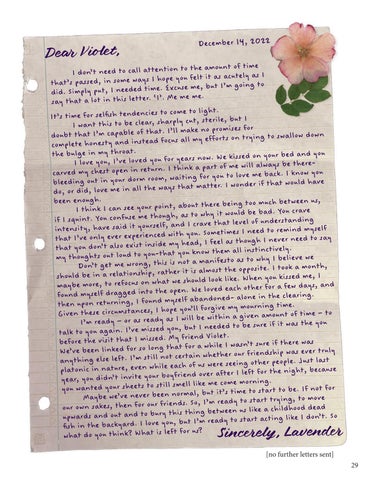 December 14, 2022
Dear Violet,
I don't need to call attention to the amount of time
that's passed, in some ways I hope you felt it as acutely as I
did. Simply put, I needed time. Excuse me, but I'm going to
say that a lot in this letter. 'I'. Me me me.
It's time for selfish tendencies to come to light.
I want this to be clear, sharply cut, sterile, but I
doubt that I'm capable of that. I'll make no promises for
complete honesty and instead focus all my efforts on trying to swallow down
the bulge in my throat.
I love you, I've loved you for years now. We kissed on your bed and you
carved my chest open in return. I think a part of me will always be there-
bleeding out in your dorm room, waiting for you to love me back. I know you
do, or did, love me in all the ways that matter. I wonder if that would have
been enough.
I think I can see your point, about there being too much between us,
if I squint. You confuse me though, as to why it would be bad. You crave
intensity, have said it yourself, and I crave that level of understanding
that I've only ever experienced with you. Sometimes I need to remind myself
that you don't also exist inside my head, I feel as though I never need to say
my thoughts out loud to you-that you know them all instinctively.
Don't get me wrong, this is not a manifesto as to why I believe we
should be in a relationship, rather it is almost the opposite. I took a month,
maybe more, to refocus on what we should look like. When you kissed me, I
found myself dragged into the open. We loved each other for a few days, and
then upon returning, I found myself abandoned- alone in the clearing.
Given these circumstances, I hope you'll forgive my mourning time.
I'm ready - or as ready as I will be within a given amount of time - to
talk to you again. I've missed you, but I needed to be sure if it was the you
before the visit that I missed. My friend Violet.
We've been linked for so long that for a while I wasn't sure if there was
anything else left. I'm still not certain whether our friendship was ever truly
platonic in nature, even while each of us were seeing other people. Just last
year, you didn't invite your boyfriend over after I left for the night, because
you wanted your sheets to still smell like me come morning.
Maybe we've never been normal, but it's time to start to be. If not for
our own sakes, then for our friends. So, I'm ready to start trying, to move
upwards and out and to bury this thing between us like a childhood dead
fish in the backyard. I love you, but I'm ready to start acting like I don't. So
what do you think? What is left for us?
Sincerely, Lavender
[no further letters sent]
29